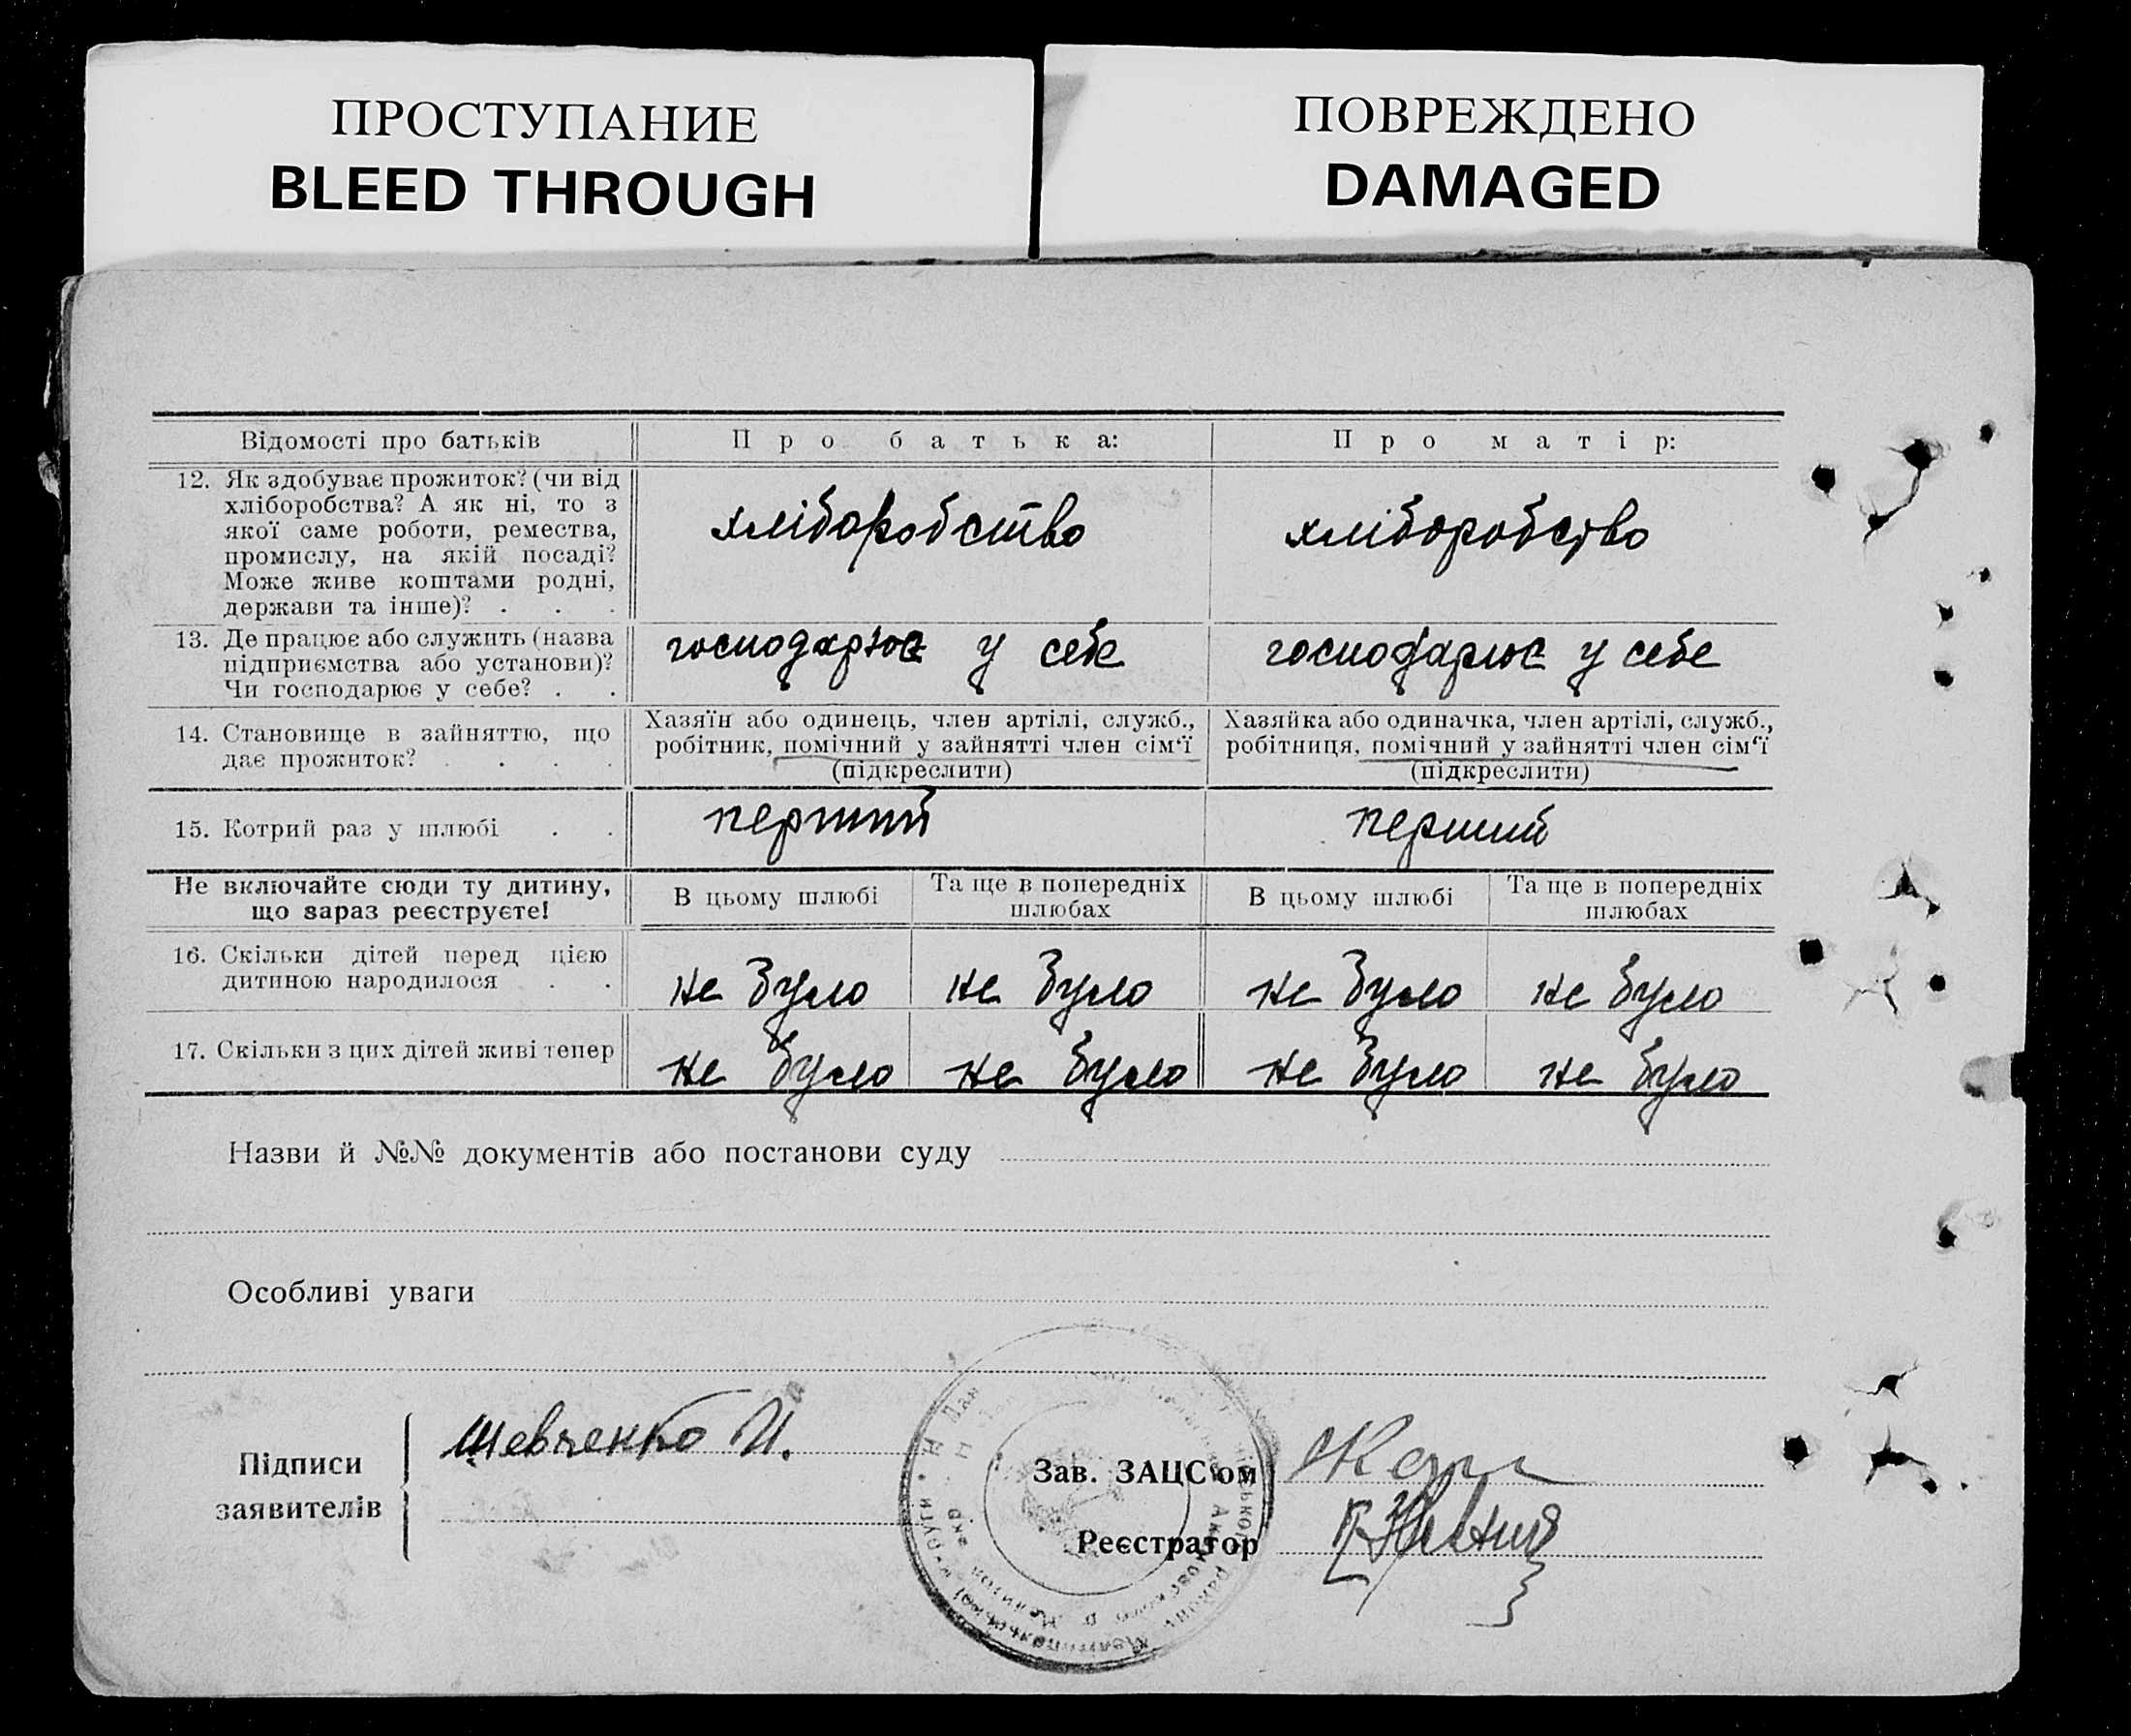 ПРОСТУПАНИЕ
BLEED THROUGH
ПОВРЕЖДЕНО
DAMAGED
Відомості про батьків
Про батька:
Про матір:
12. Як здобуває прожиток? (чи від
хліборобства? А як ні, то з
якої саме роботи, ремества,
промислу, на якій посаді?
Може живе коштами родні,
держави та інше)? . . .
хліборобство
хліборобство
13. Де працює або служить (назва
підприємства або установи)?
Чи господарює у себе? . .
господарює у себе
господарює у себе
14. Становище в зайняттю, що
дає прожиток? . . . .
Хазяїн або одинець, член артілі, служб.,
робітник, помічний у зайнятті член сім‘ї
(підкреслити)
Хазяйка або одиначка, член артілі, служб.,
робітниця, помічний у зайнятті член сім‘ї
(підкреслити)
15. Котрий раз у шлюбі . .
перший
перший
Не включайте сюди ту дитину,
що зараз реєструєте!
В цьому шлюбі
Та ще в попередніх
шлюбах
В цьому шлюбі
Та ще в попередніх
шлюбах
16. Скільки дітей перед цією
дитиною народилося . .
не було
не було
не було
не було
17. Скільки з цих дітей живі тепер
не було
не було
не було
не було
Назви й №№ документів або постанови суду
Особливі уваги
Підписи
заявителів
Шевченко И.
Зав. ЗАЦС‘ом
Реєстратор